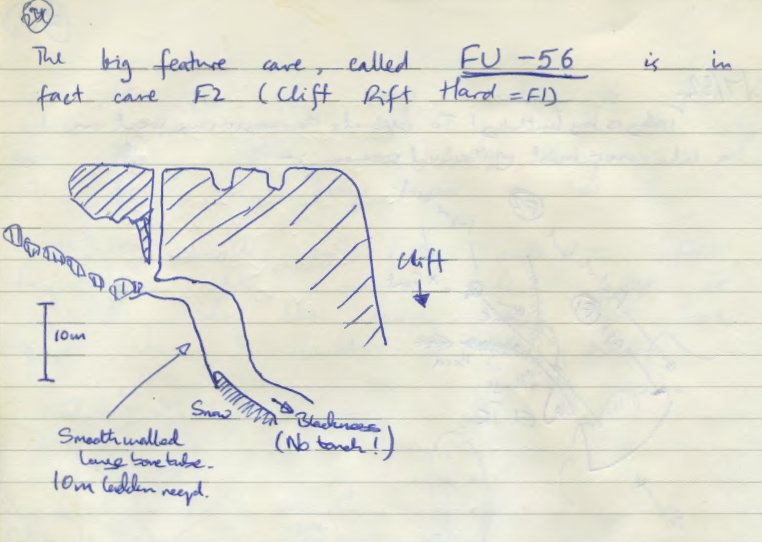 The big feature cave, called FU-56 is in
fact cave F2 (Clift Rift Hard = F1)
Clift
10m
Snow
Blackness
(No torch!)
Smooth walled
large bore tube.
10m ladder reqd.